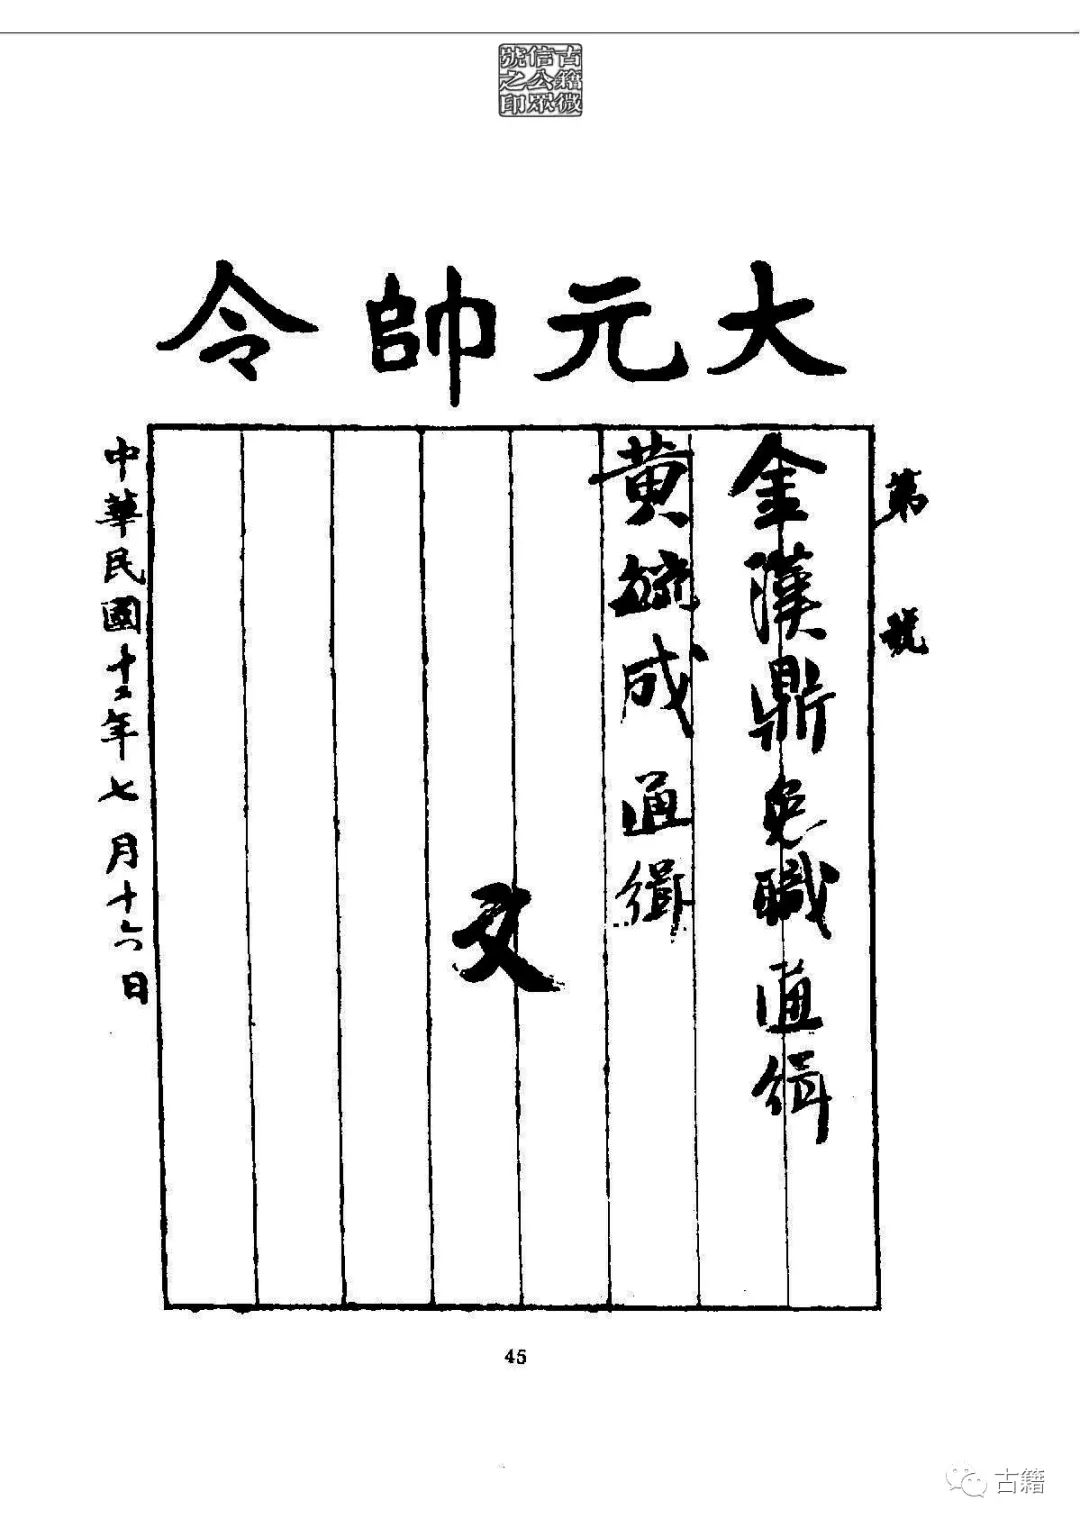 古籍微
信公眾
號之印
大元帥令
第　號
金漢鼎免職通緝
黃毓成通緝
文
中華民國十二年七月十六日
45
古籍